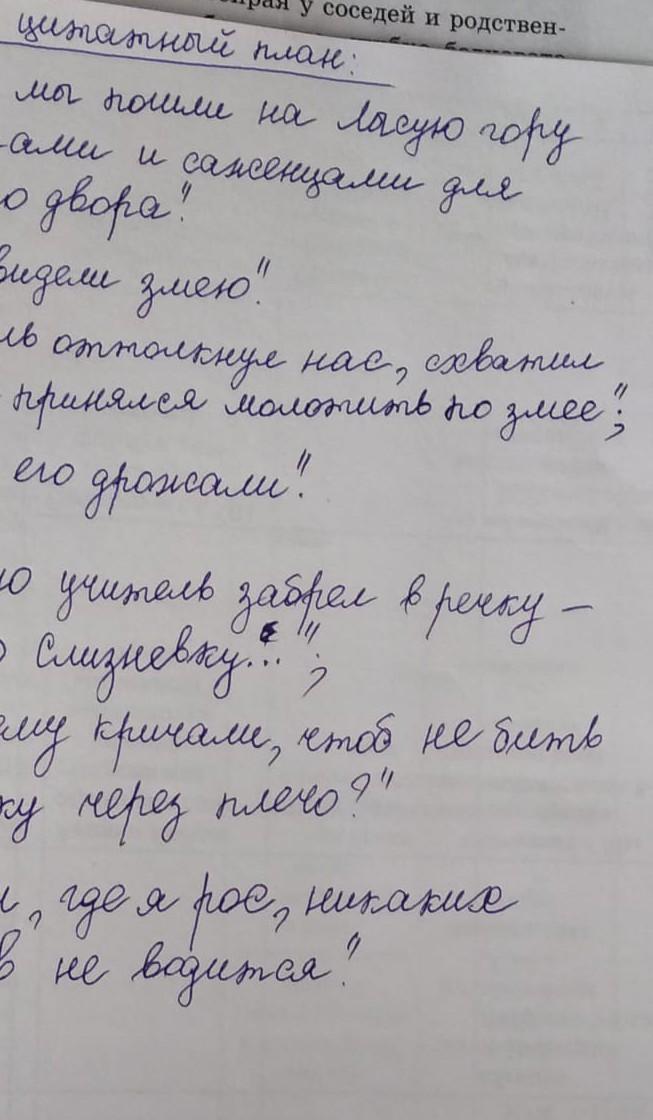 собирая у соседей и родствен-
цитатный план:
мы пошли на лысую гору
-ами и саженцами для
о двора".
видели змею".
ль оттолкнул нас, схватил
принялся молотить по змее";
его дрожали".
ю учитель забрел в речку –
о Слизневку...";
ему кричали, чтоб не бить
ку через плечо?"
и, где я рос, никаких
в не водится".